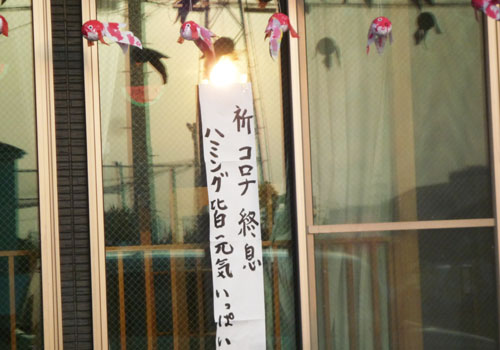 祈コロナ終息
ハミング皆元気いっぱい